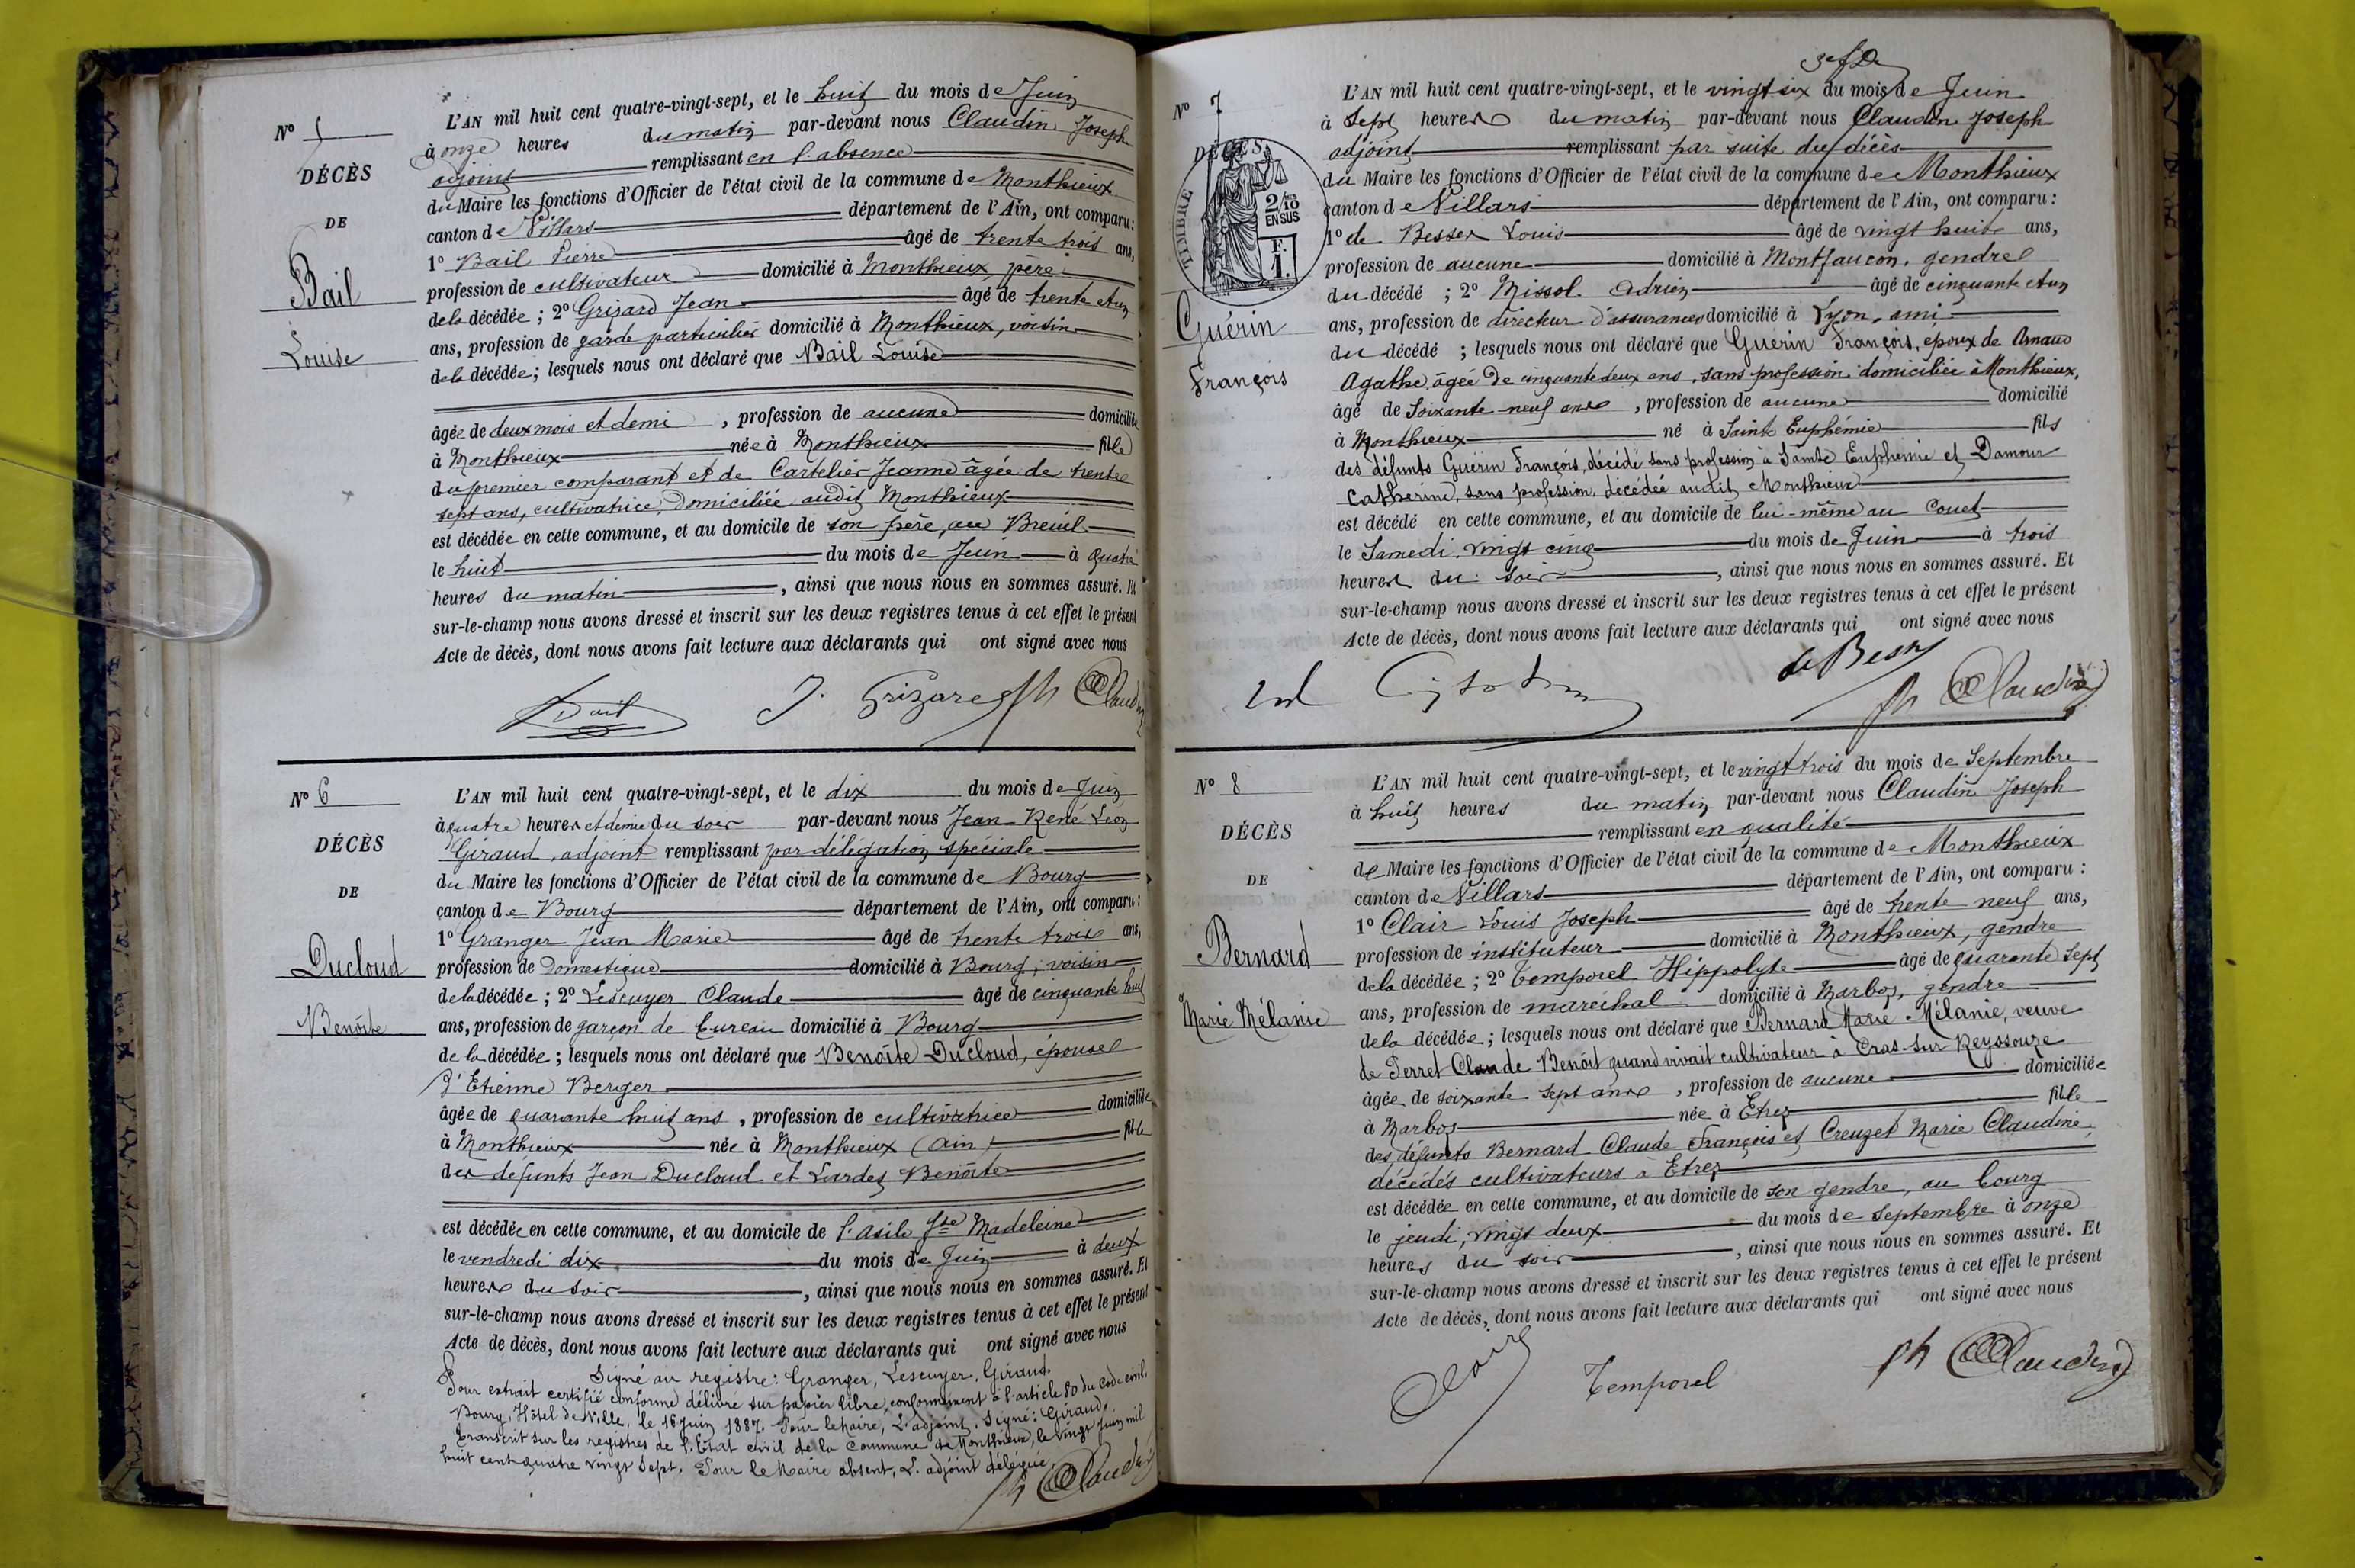 N° 5
DÉCÈS
DE
Bail
Louise
L'AN mil huit cent quatre-vingt-sept, et le huit du mois de Juin
à onze heures du matin par-devant nous Claudin Joseph
adjoint remplissant en l'absence
du Maire les fonctions d'Officier de l'état civil de la commune de Monthieux
canton de Villars département de l'Ain, ont comparu :
1° Bail Pierre âgé de trente trois ans,
profession de cultivateur domicilié à Monthieux, père
de la décédée ; 2° Grizard Jean âgé de trente et un
ans, profession de garde particulier domicilié à Monthieux, voisin
de la décédée ; lesquels nous ont déclaré que Bail Louise
âgée de deux mois et demi , profession de aucune domiciliée
à Monthieux née à Monthieux fille
du premier comparant et de Cartelier Jeanne âgée de trente
sept ans, cultivatrice, domiciliée audit Monthieux
est décédée en cette commune, et au domicile de son père, au Breuil
le huit du mois de Juin à quatre
heures du matin , ainsi que nous nous en sommes assuré. Et
sur-le-champ nous avons dressé et inscrit sur les deux registres tenus à cet effet le présent
Acte de décès, dont nous avons fait lecture aux déclarants qui ont signé avec nous
Bail J. Grizard Jh Claudin
N° 6
DÉCÈS
DE
Ducloud
Benoîte
L'AN mil huit cent quatre-vingt-sept, et le dix du mois de Juin
à quatre heures et demie du soir par-devant nous Jean René Léon
Giraud, adjoint remplissant par délégation spéciale
du Maire les fonctions d'Officier de l'état civil de la commune de Bourg
canton de Bourg département de l'Ain, ont comparu :
1° Granger Jean Marie âgé de trente trois ans,
profession de Domestique domicilié à Bourg, voisin
de la décédée ; 2° Lescuyer Claude âgé de cinquante huit
ans, profession de garçon de bureau domicilié à Bourg
de la décédée ; lesquels nous ont déclaré que Benoîte Ducloud, épouse
d'Etienne Berger
âgée de quarante huit ans , profession de cultivatrice domiciliée
à Monthieux née à Monthieux (Ain) fille
des défunts Jean Ducloud et Lardet Benoîte
est décédée en cette commune, et au domicile de l'asile Ste Madeleine
le vendredi dix du mois de Juin à deux
heures du soir , ainsi que nous nous en sommes assuré. Et
sur-le-champ nous avons dressé et inscrit sur les deux registres tenus à cet effet le présent
Acte de décès, dont nous avons fait lecture aux déclarants qui ont signé avec nous
Signé au registre : Granger, Lescuyer, Giraud.
Pour extrait certifié conforme délivré sur papier libre, conformément à l'article 80 du Code civil.
Bourg, Hôtel de Ville, le 16 Juin 1887. Pour le Maire, L'adjoint, Signé : Giraud,
Transcrit sur les registres de l'Etat civil de la Commune de Monthieux, le vingt Juin mil
huit cent quatre vingt sept. Pour le Maire absent, L'adjoint délégué,
Jh Claudin
N° 7
DÉCÈS
TIMBRE
2/10 EN SUS
F. 1.
Guérin
François
L'AN mil huit cent quatre-vingt-sept, et le vingt six du mois de Juin
à Sept heures du matin par-devant nous Claudin Joseph
adjoint remplissant par suite du décès
du Maire les fonctions d'Officier de l'état civil de la commune de Monthieux
canton de Villars département de l'Ain, ont comparu :
1° de Besser Louis âgé de vingt huit ans,
profession de aucune domicilié à Montfaucon, gendre
du décédé ; 2° Missol Adrien âgé de cinquante et un
ans, profession de directeur d'assurances domicilié à Lyon, ami
du décédé ; lesquels nous ont déclaré que Guérin François, époux de Arnaud
Agathe, âgée de cinquante deux ans, sans profession, domiciliée à Monthieux,
âgé de Soixante neuf ans , profession de aucune domicilié
à Monthieux né à Sainte Euphémie fils
des défunts Guérin François, décédé sans profession à Sainte Euphémie et Damour
Catherine, sans profession, décédée audit Monthieux
est décédé en cette commune, et au domicile de lui-même au Couet
le Samedi, vingt cinq du mois de Juin à trois
heures du soir , ainsi que nous nous en sommes assuré. Et
sur-le-champ nous avons dressé et inscrit sur les deux registres tenus à cet effet le présent
Acte de décès, dont nous avons fait lecture aux déclarants qui ont signé avec nous
de Besser
Jh Claudin
N° 8
DÉCÈS
DE
Bernard
Marie Mélanie
L'AN mil huit cent quatre-vingt-sept, et le vingt trois du mois de Septembre
à huit heures du matin par-devant nous Claudin Joseph
remplissant en qualité
de Maire les fonctions d'Officier de l'état civil de la commune de Monthieux
canton de Villars département de l'Ain, ont comparu :
1° Clair Louis Joseph âgé de trente neuf ans,
profession de instituteur domicilié à Monthieux, gendre
de la décédée ; 2° Temporel Hippolyte âgé de quarante sept
ans, profession de maréchal domicilié à Marboz, gendre
de la décédée ; lesquels nous ont déclaré que Bernard Marie Mélanie, veuve
de Perret Claude Benoît quand vivait cultivateur à Cras-sur Reyssouze
âgée de soixante sept ans , profession de aucune domiciliée
à Marboz née à Etrez fille
des défunts Bernard Claude François et Creuzet Marie Claudine,
décédés cultivateurs à Etrez
est décédée en cette commune, et au domicile de son gendre, au bourg
le jeudi, vingt deux du mois de septembre à onze
heures du soir , ainsi que nous nous en sommes assuré. Et
sur-le-champ nous avons dressé et inscrit sur les deux registres tenus à cet effet le présent
Acte de décès, dont nous avons fait lecture aux déclarants qui ont signé avec nous
Clair Temporel Jh Claudin